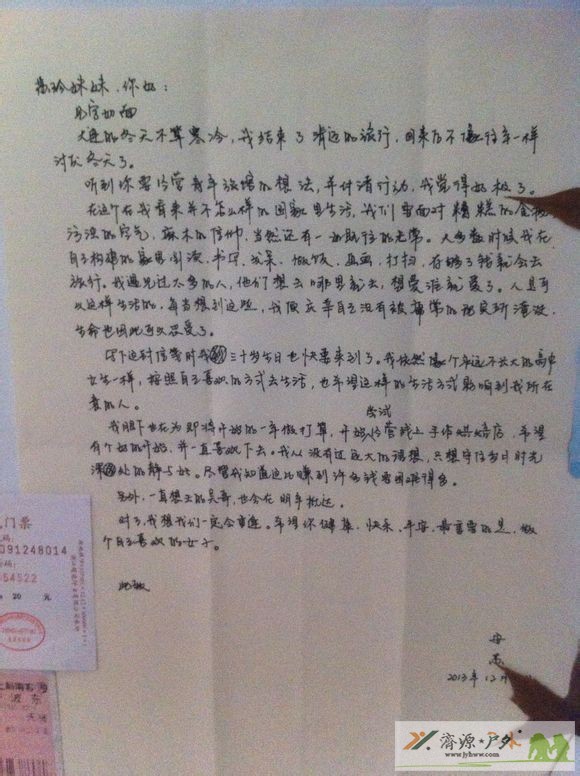 妹妹,你好:
见字如面
大连的冬天不算寒冷,我结束了有远的旅行,回来后不像往年一样
讨厌冬天了。
听到你要经营青年旅馆的想法,并付诸行动,我觉得好极了。
在这个在我看来并不怎么样的国家里生活,我们要面对糟糕的食物
污浊的空气,麻木的信仰,当然还有一如既往的无常。大多数时候我在
自己构建的氛围里阅读,书写,发呆,做饭,画画,打扫,存够了钱就会去
旅行。我遇见过太多的人,他们想去哪里就去,想爱谁就爱了。人是可
以这样生活的,每当想到这些,我庆幸自己没有被庸常的现实所淹没,
生命也因此可以忍受了。
写下这封信笺时我三十岁生日也快要来到了。我依然像个永远不长大的高中
女生一样,按照自己喜欢的方式去生活,也希望这样的生活方式影响到我所在
意的人。
我眼下也在为即将开始的一年做打算,开始尝试经营线上手作烘焙店,希望
有个好的开始,并一直喜欢下去。我从没有过远大的理想,只想守住岁月时光
深处的静与好。尽管我知道这比赚到许多钱要困难得多。
另外,一直想文的吴哥,也会在明年抵达。
对了,我想我们一定会重逢。希望你健康,快乐,平安,最重要的是,做
个自己喜欢的女子。
此致
2013年12月
门票
091248014
54522
20 元
波东
濟源·户外
www.jyhww.com